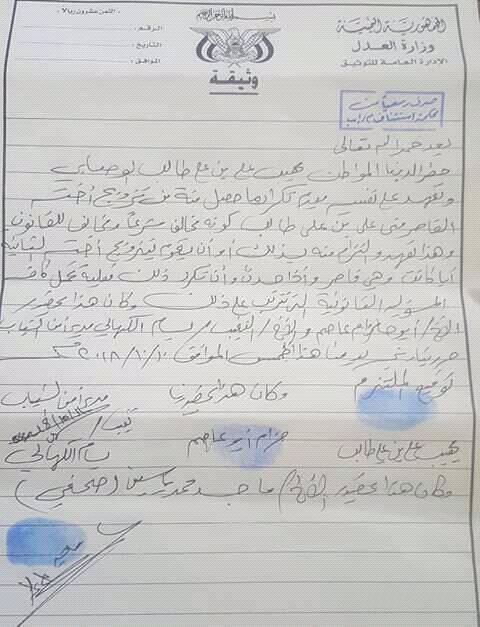 بسم الله الرحمن الرحيم
الجمهورية اليمنية
وزارة العدل
الإدارة العامة للتوثيق
الثمن عشرون ريالا
الرقم:
التاريخ:
الموافق:
وثيقة
صرف رسمياً من
محكمة استئناف م/ إب
بعد حمد الله تعالى
حضر لدينا المواطن يحيى علي بن علي طالب الوصابي
وتعهد على نفسه بعدم تكرار ما حصل منه من تزويج أخته
القاصر منى علي بن علي طالب كونه مخالف شرعاً ومخالف للقانون
وهذا تعهد والتزام منه بذلك أو أن يقوم بتزويج أخته الثانية
أيا كانت وهي قاصر وإذا حدث وأن تكرر ذلك فعليه تحمل كافة
المسؤلية القانونية التي تترتب على ذلك وكان هذا بحضور
الأخ/ أبو حزام عاصم والأخ/ النقيب بسام الكهالي مدير أمن السياب
حرر بتاريخ يومنا هذا الخميس الموافق ٢٠١٨/١/١٠م
توقيع الملتزم
وكان هذا بحضورنا
مدير أمن السياب
نقيب/
يحيى علي بن علي طالب
حزام أبو عاصم
بسام الكهالي
وكان هذا بحضور الأخ/ ماجد محمد ياسين (صحفي)